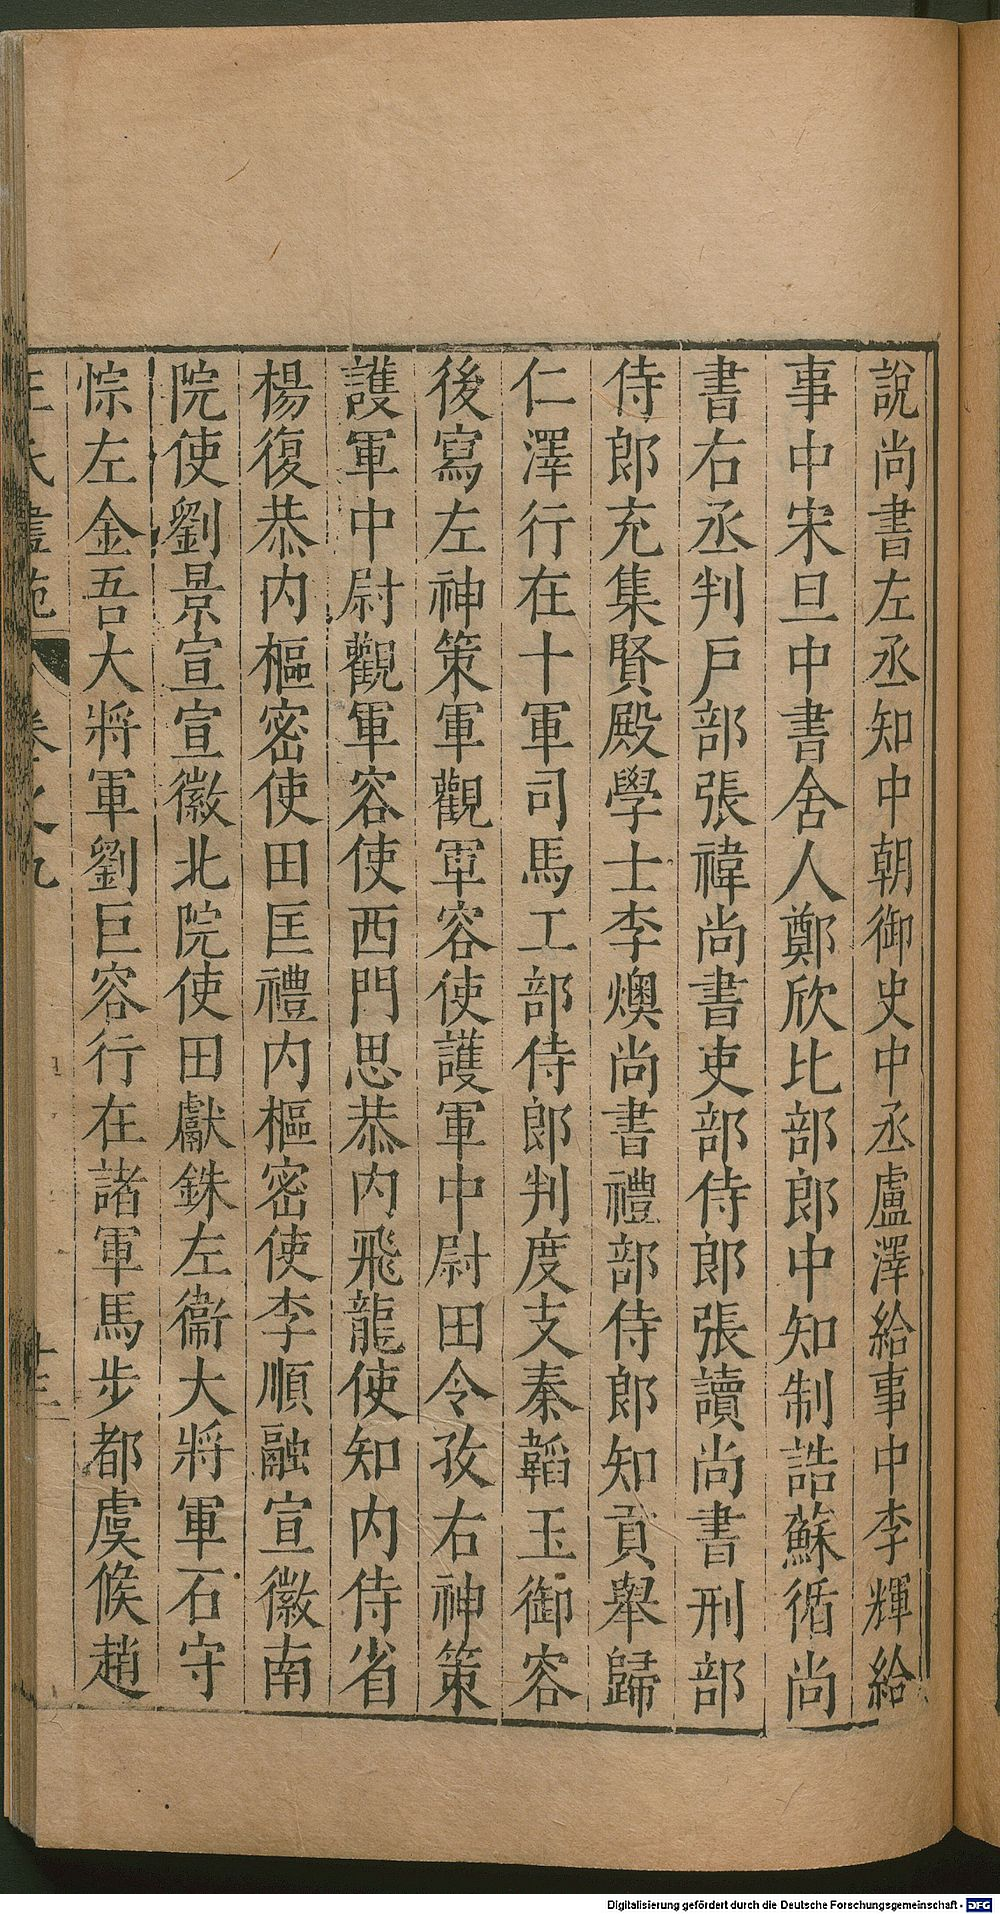 說尚書左丞知中朝御史中丞盧澤給事中李輝給
事中宋旦中書舍人鄭欣比部郎中知制誥蘇循尚
書右丞判戶部張禕尚書吏部侍郎張讀尚書刑部
侍郎充集賢殿學士李燠尚書禮部侍郎知貢舉歸
仁澤行在十軍司馬工部侍郎判度支秦韜玉御容
後寫左神策軍觀軍容使護軍中尉田令孜右神策
護軍中尉觀軍容使西門思恭內飛龍使知內侍省
楊復恭內樞密使田匡禮內樞密使李順融宣徽南
院使劉景宣宣徽北院使田獻銖左衞大將軍石守
悰左金吾大將軍劉巨容行在諸軍馬步都虞候趙
王氏畫苑 卷之九 十三
Digitalisierung gefördert durch die Deutsche Forschungsgemeinschaft - DFG